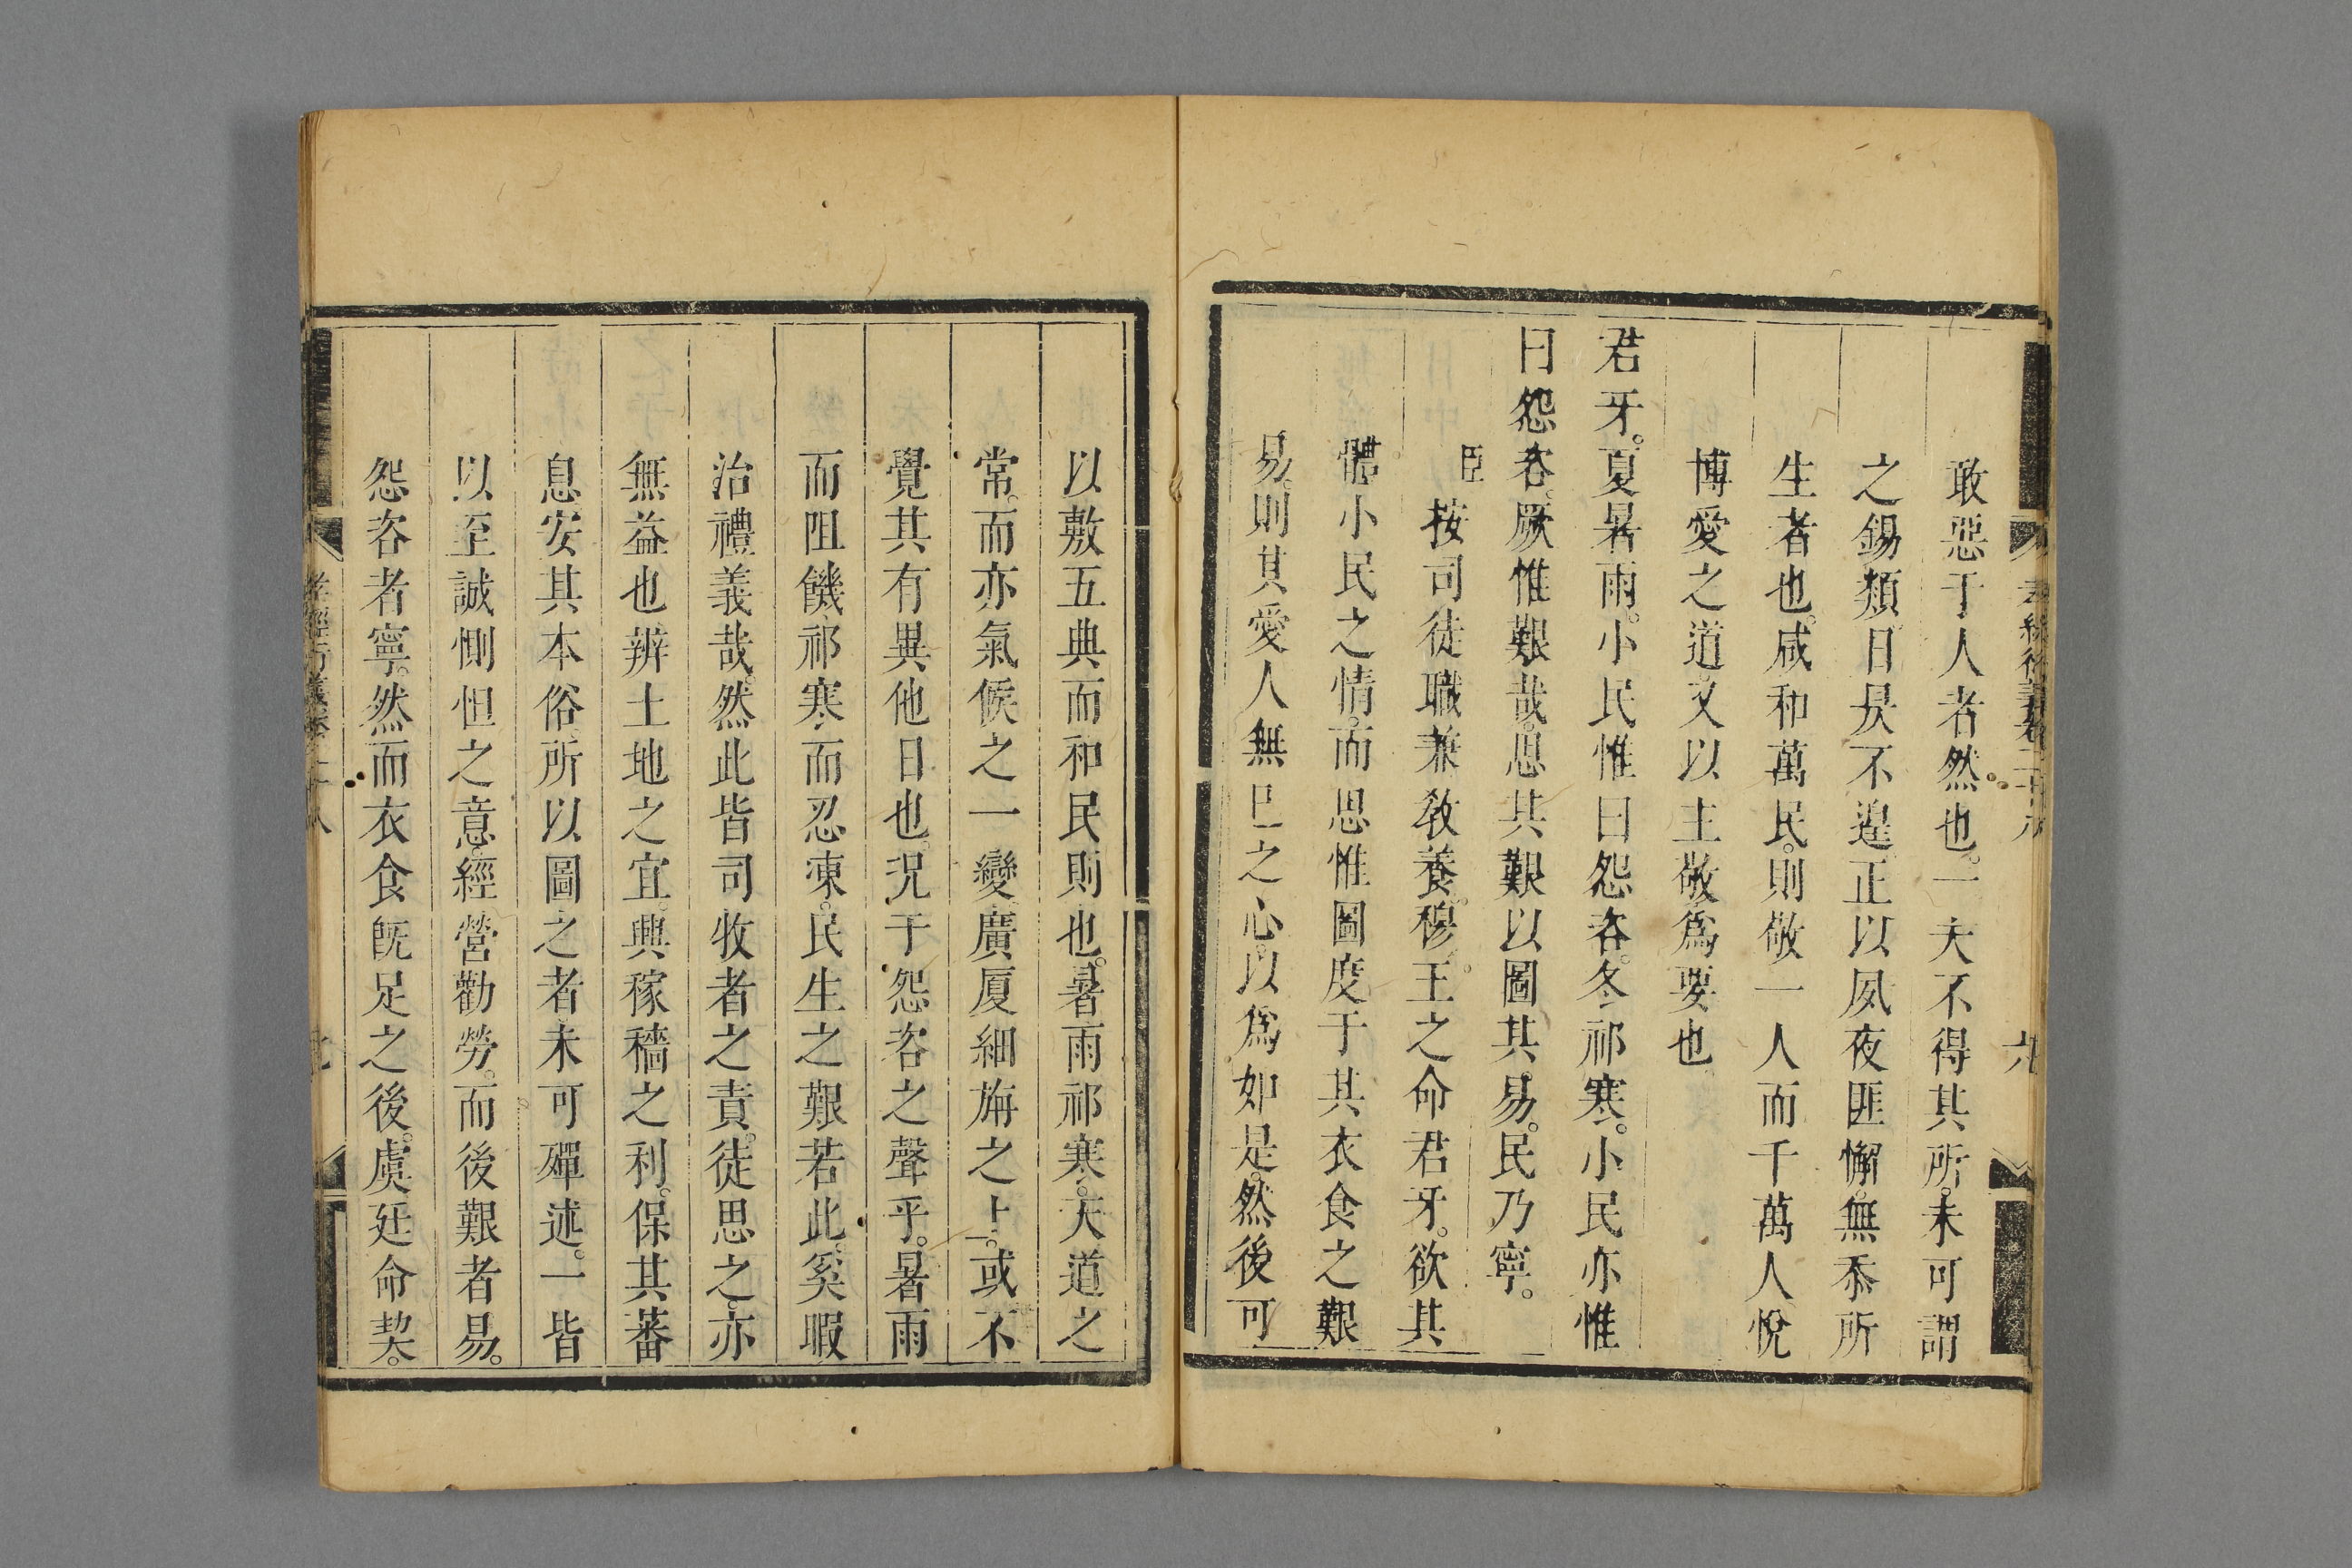 敢惡于人者然也。一夫不得其所。未可謂
之錫類。日昃不遑。正以夙夜匪懈。無忝所
生者也。咸和萬民。則敬一人而千萬人悅
博愛之道。又以主敬爲要也
君牙。夏暑雨。小民惟曰怨咨。冬祁寒。小民亦惟
曰怨咨。厥惟艱哉。思其艱以圖其易。民乃寧。
臣按司徒職兼敎養。穆王之命君牙。欲其
體小民之情。而思惟圖度于其衣食之艱
易。則其愛人無已之心。以爲如是。然後可
以敷五典而和民則也。暑雨祁寒。天道之
常。而亦氣候之一變。廣厦細旃之上。或不
覺其有異他日也。況于怨咨之聲乎。暑雨
而阻饑。祁寒而忍凍。民生之艱若此。奚暇
治禮義哉。然此皆司牧者之責。徒思之。亦
無益也。辨土地之宜。興稼穡之利。保其蕃
息。安其本俗。所以圖之者。未可殫述。一皆
以至誠惻怛之意。經營勸勞。而後艱者易。
怨咨者寧。然而衣食旣足之後。虞廷命契。
孝經衍義卷二十八